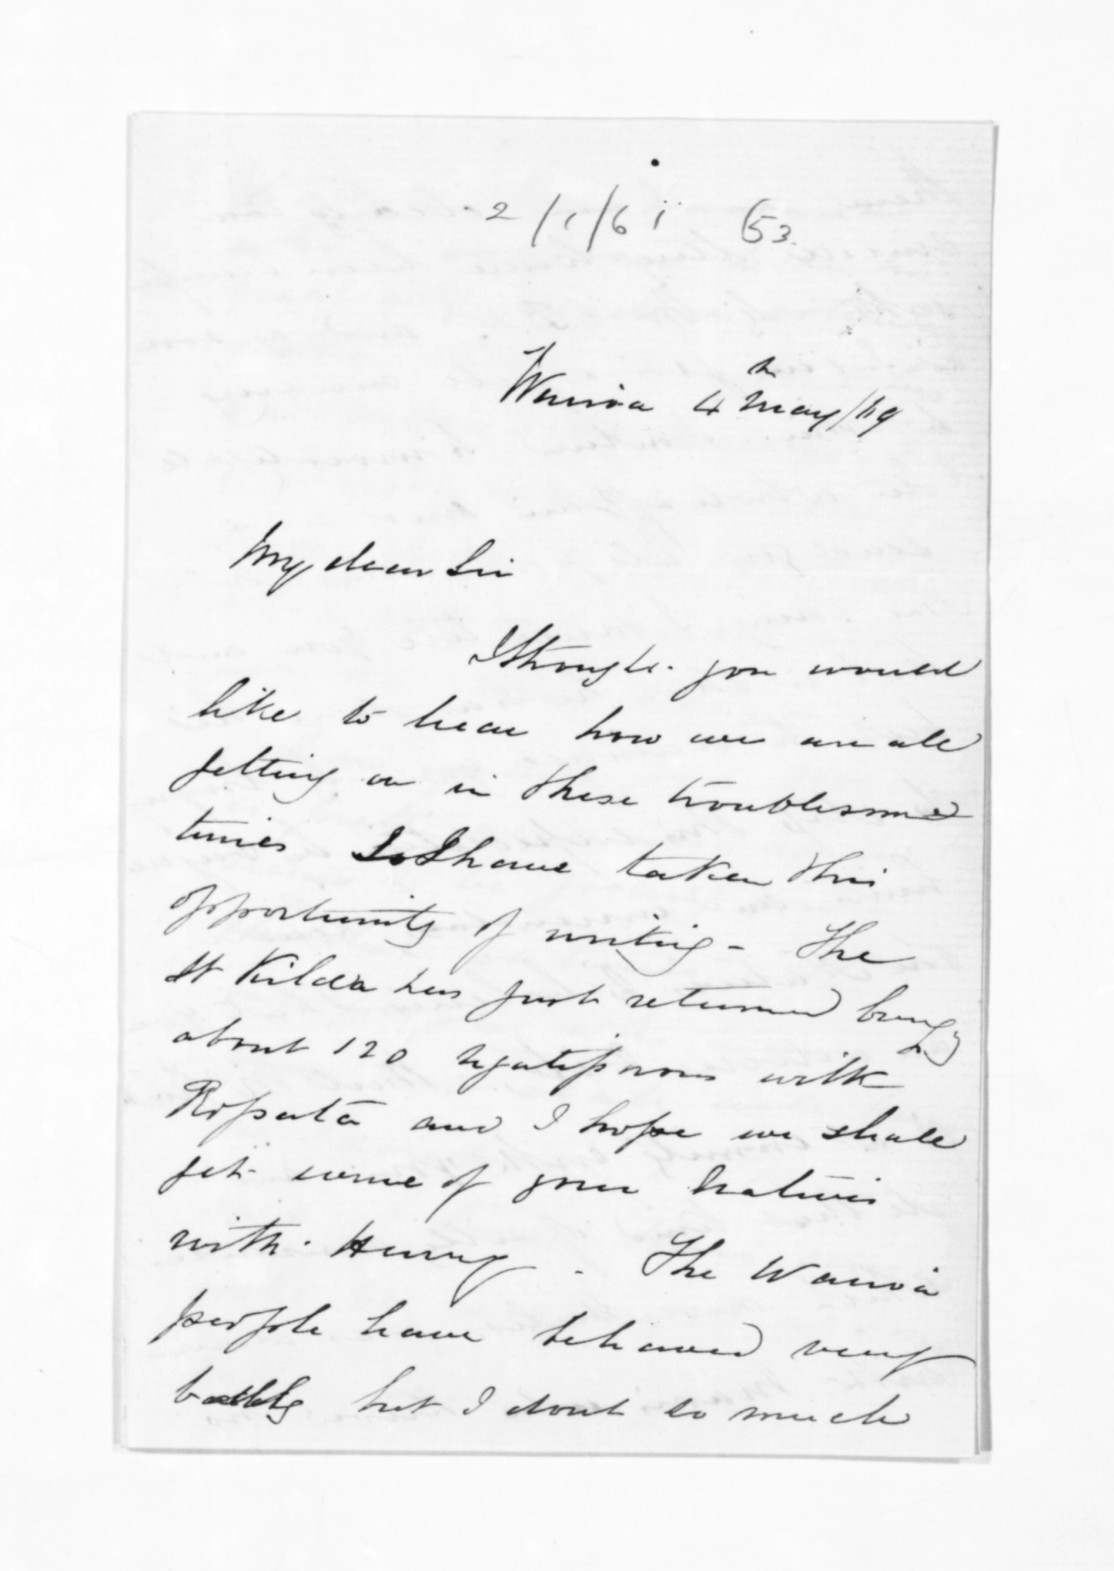 2/1/61 (53.
Wairoa 4th May/69
My dear Sir
I thought you would
like to hear how we are all
getting on in these troublesome
times So I have taken this
opportunity of writing - The
St Kilda has just returned bringg
about 120 Ngatiporous with
Ropata and I hope we shall
get some of your Natives
with Henry. The Wairoa
people have behaved very
badly but I dont so much